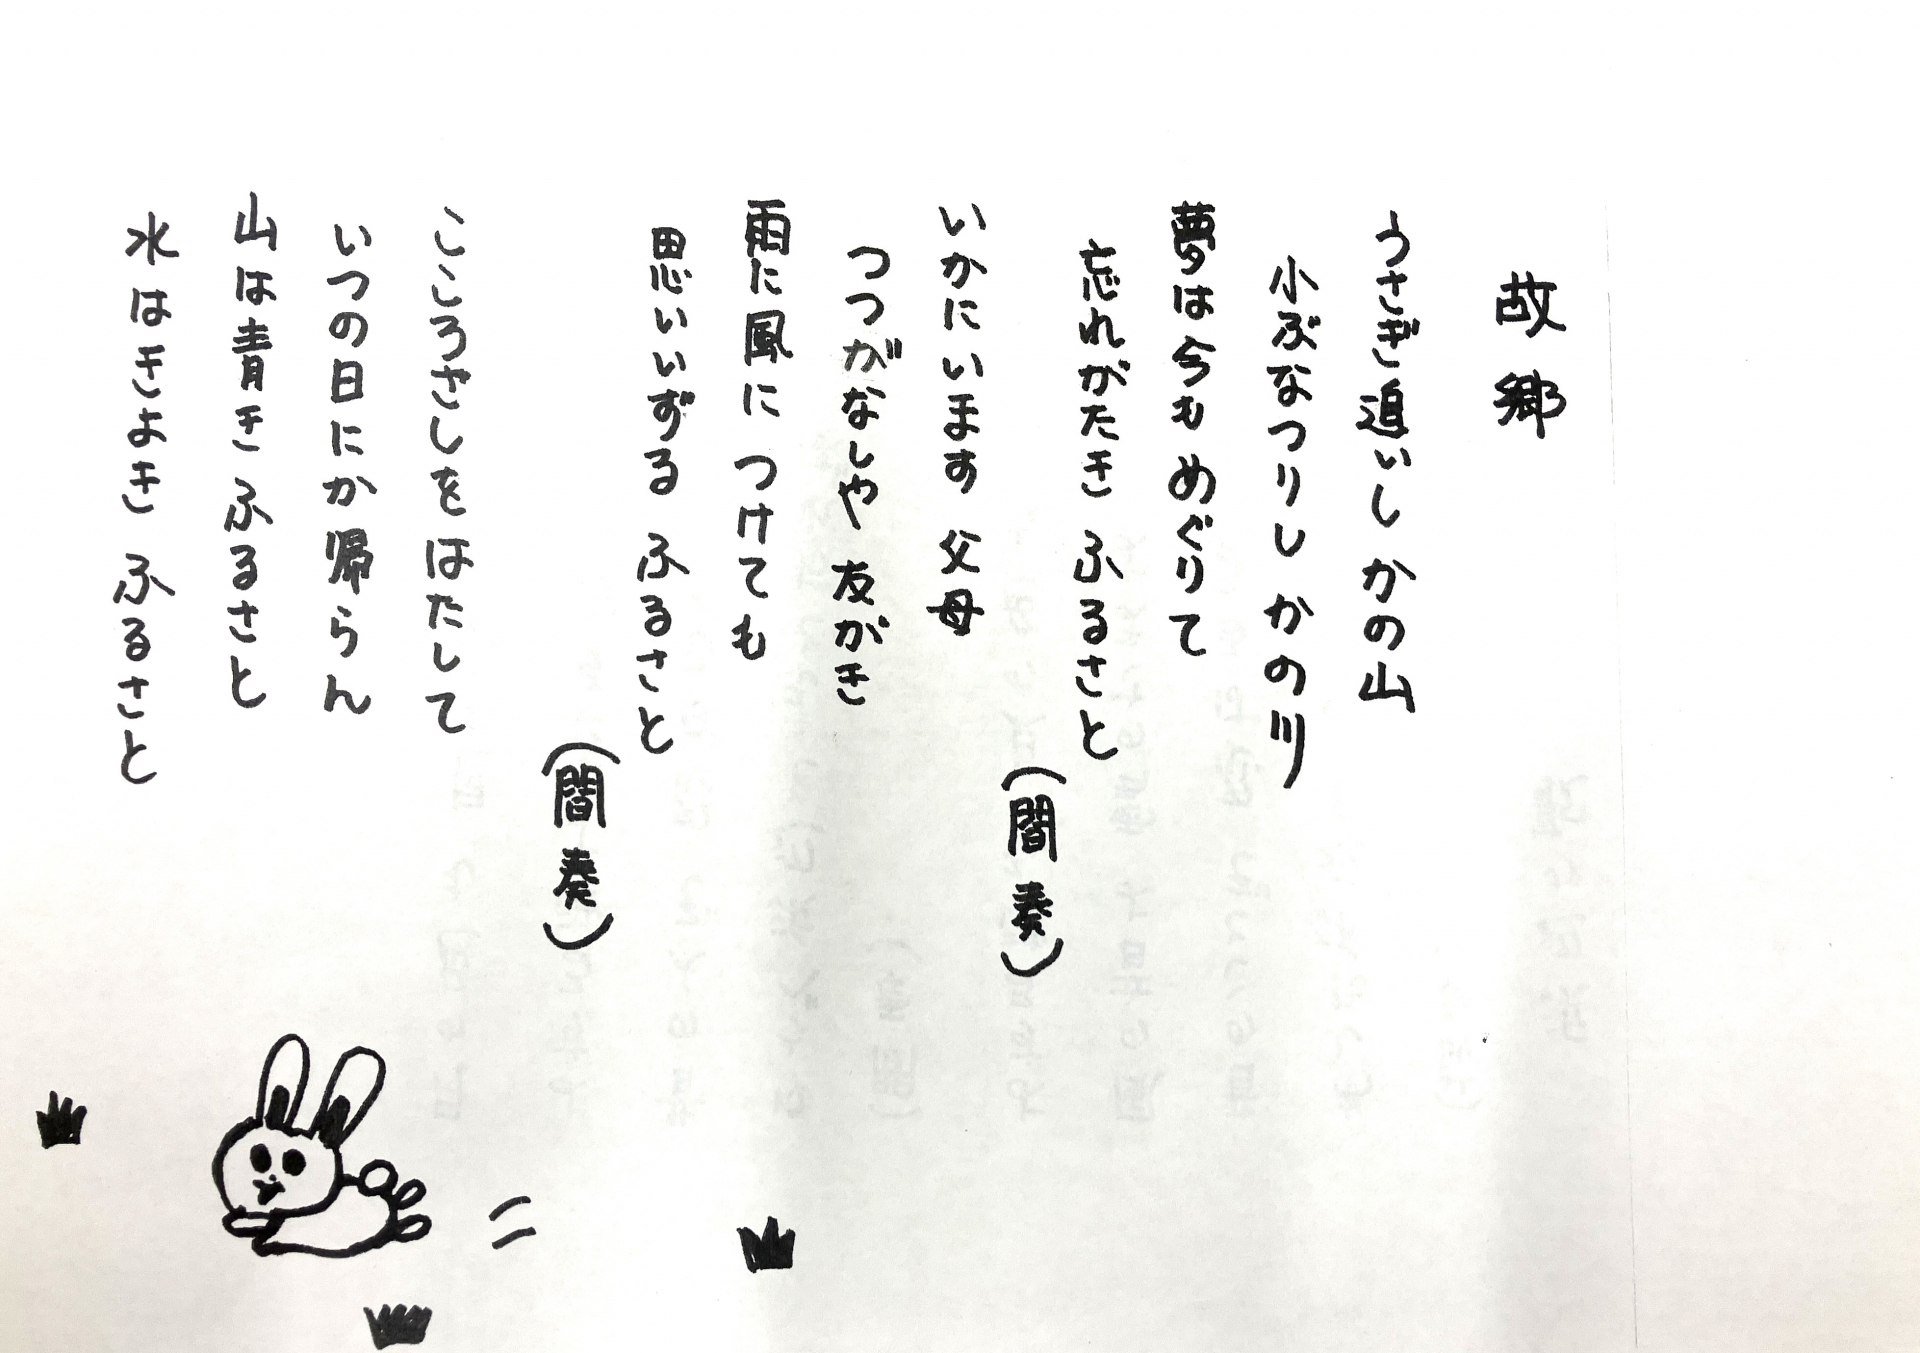 故郷
うさぎ追いし かの山
小ぶなつりし かの川
夢は今も めぐりて
忘れがたき ふるさと
(間奏)
いかにいます 父母
つつがなしや 友がき
雨に風に つけても
思いいずる ふるさと
(間奏)
こころざしを はたして
いつの日にか 帰らん
山は青き ふるさと
水はきよき ふるさと